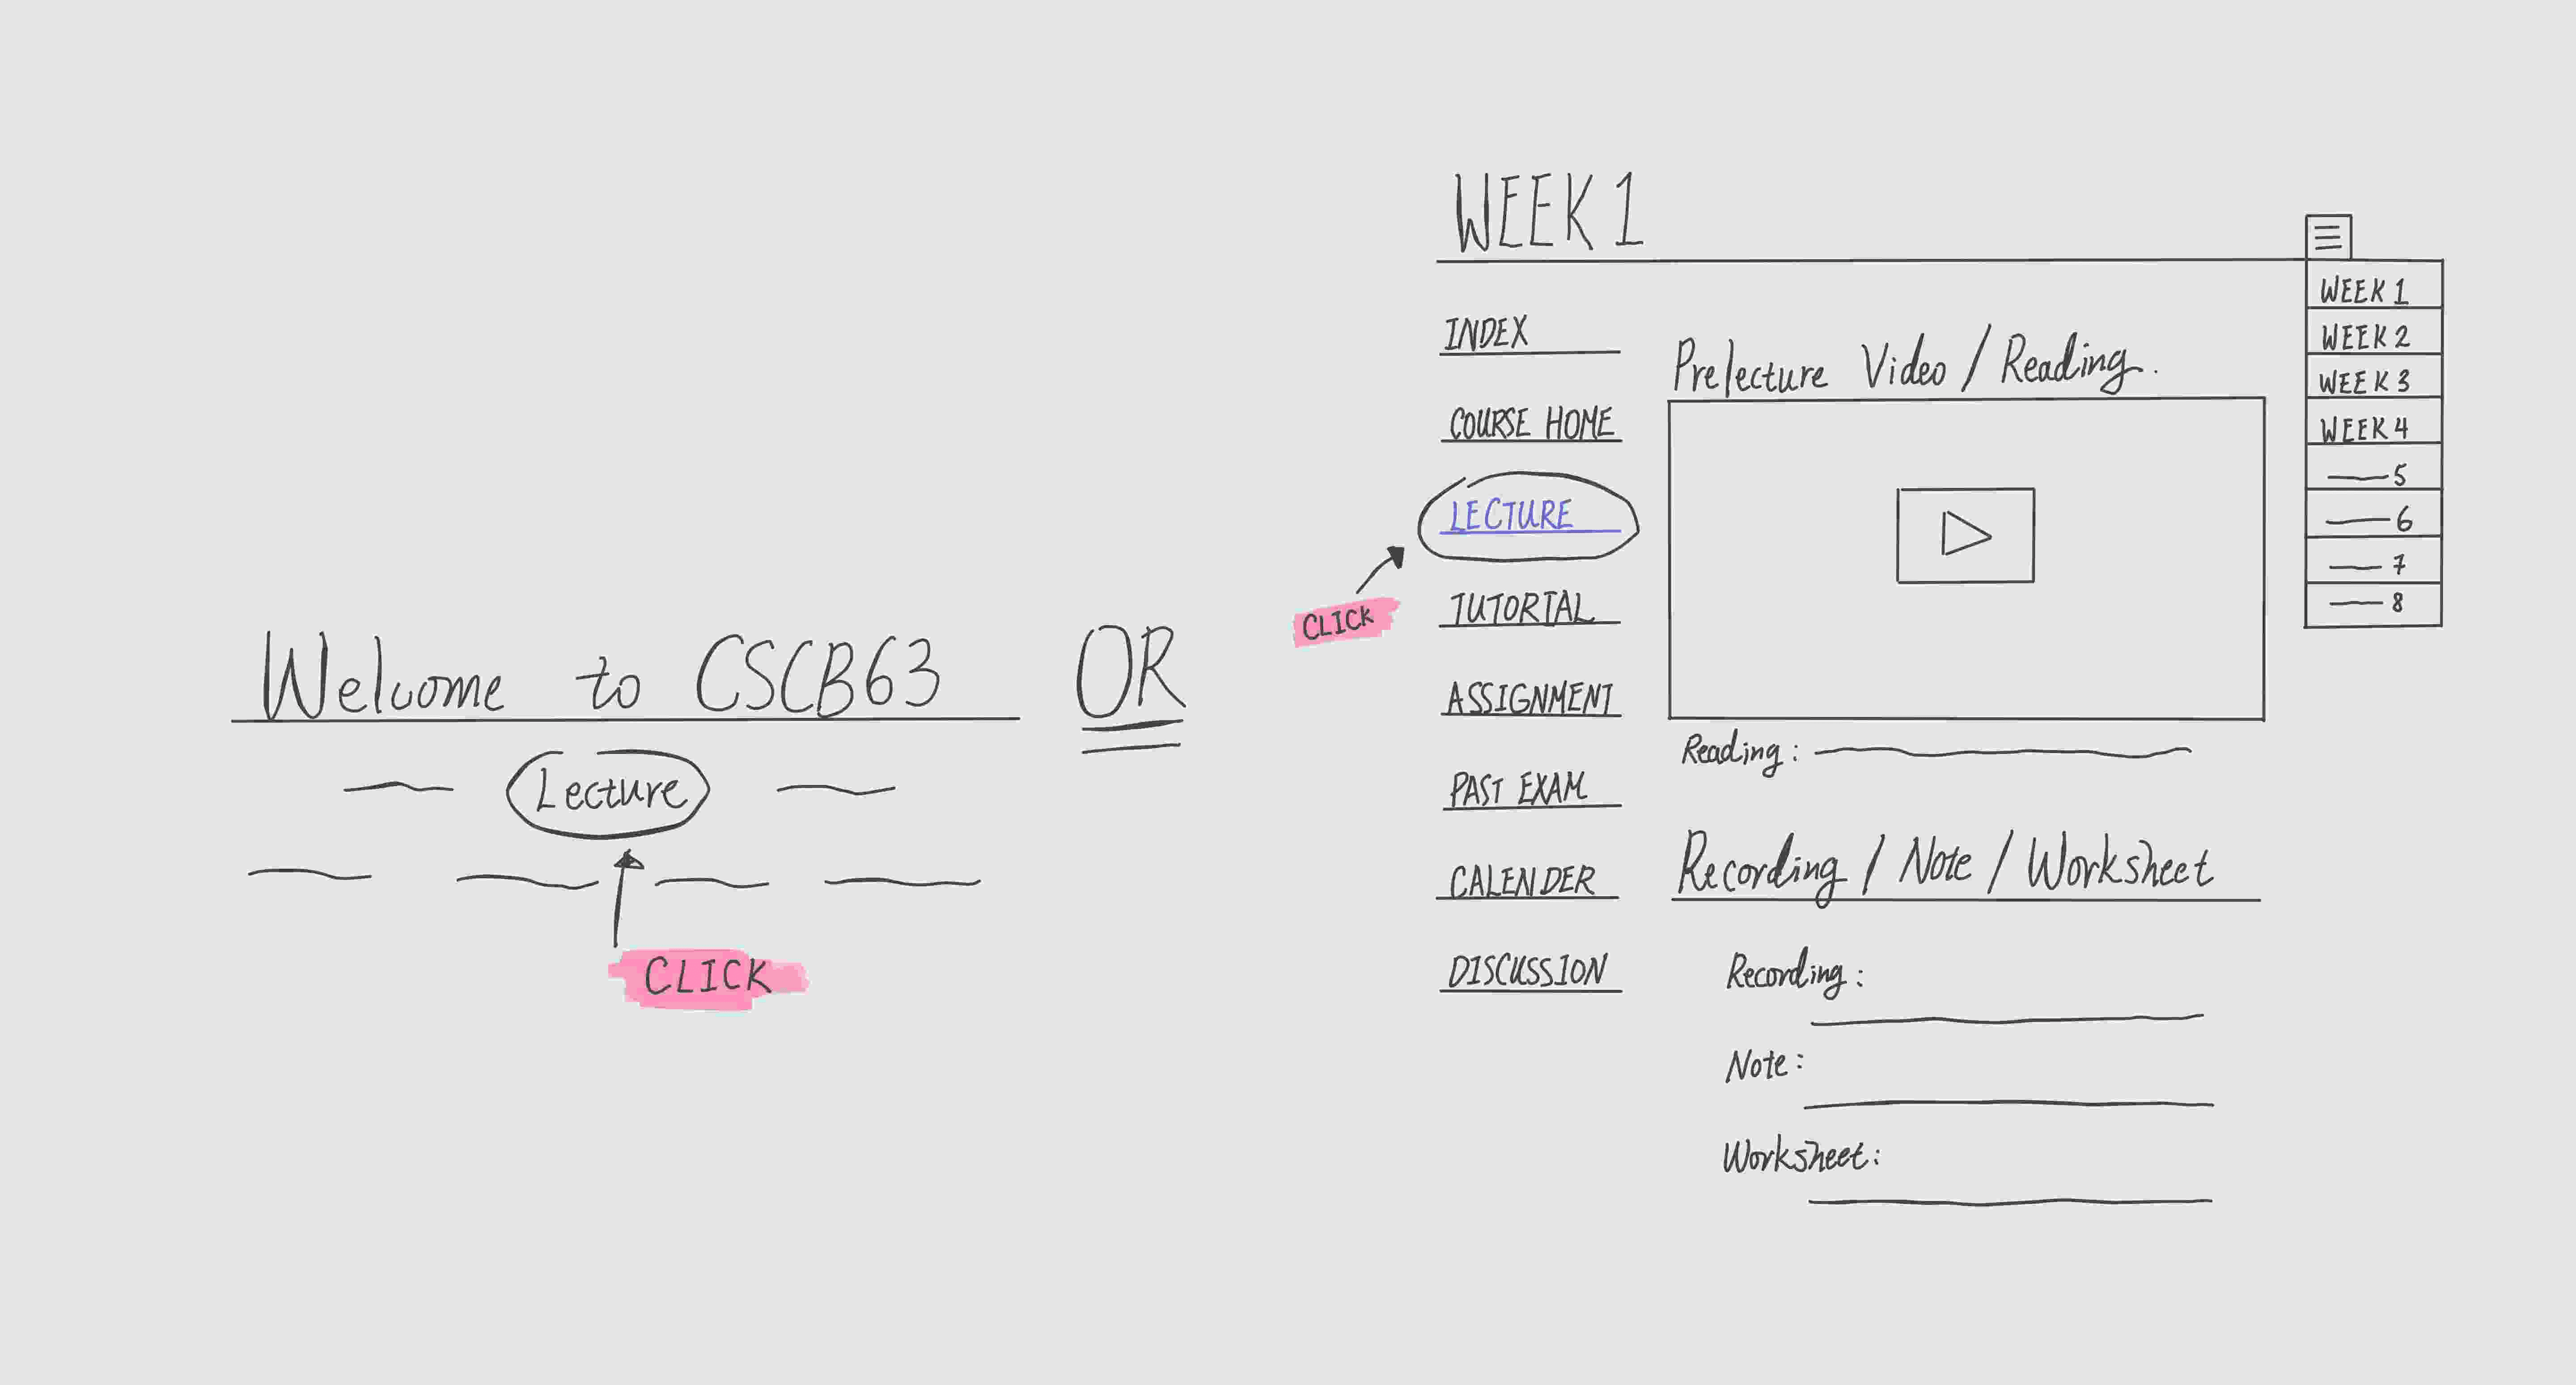 Welcome to CSCB63
Lecture
CLICK
OR
WEEK 1
INDEX
COURSE HOME
LECTURE
CLICK
TUTORIAL
ASSIGNMENT
PAST EXAM
CALENDER
DISCUSSION
Prelecture Video / Reading.
Reading :
Recording / Note / Worksheet
Recording :
Note :
Worksheet :
WEEK 1
WEEK 2
WEEK 3
WEEK 4
5
6
7
8